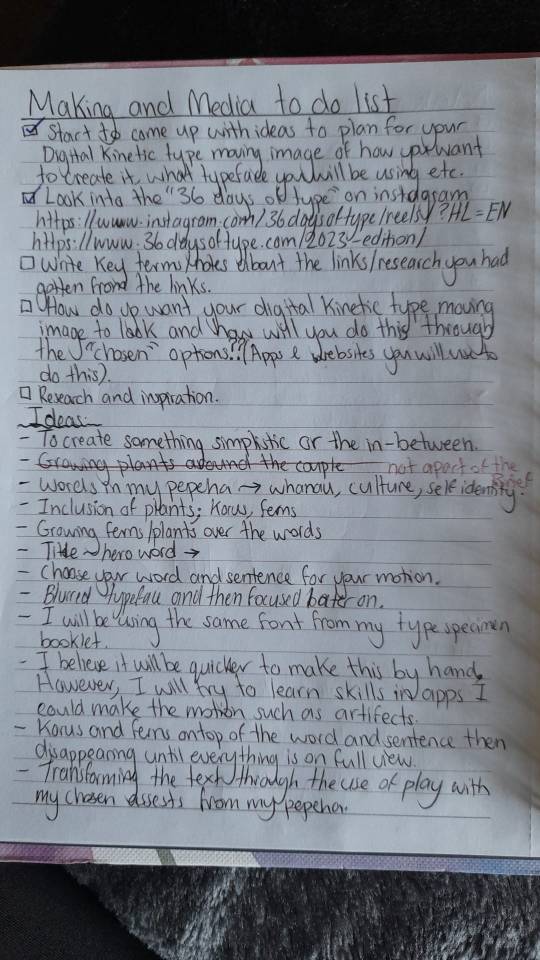 Making and Media to do list
☑ Start to come up with ideas to plan for your
Digital Kinetic type moving image of how you want
to create it, what typeface you will be using etc.
☑ Look into the "36 days of type" on instagram
https://www.instagram.com/36daysoftype/reels/?HL=EN
https://www.36daysoftype.com/2023-edition/
☐ Write Key terms/notes about the links/research you had
gotten from the links.
☐ How do up want your digital Kinetic type moving
image to look and how will you do this through
the "chosen" options!?(Apps & websites you will use to
do this).
☐ Research and inspiration.
Ideas:
- To create something simplistic or the in-between.
- Growing plants around the couple not apart of the
brief
- Words in my pepeha → whanau, culture, self identity.
- Inclusion of plants; Korus, ferns
- Growing ferns/plants over the words
- Title → hero word →
- Choose your word and sentence for your motion.
- Blurred typeface and then focused later on.
- I will be using the same font from my type specimen
booklet.
- I believe it will be quicker to make this by hand.
However, I will try to learn skills in apps I
could make the motion such as artifects.
- Korus and ferns ontop of the word and sentence then
disappearing until everything is on full view.
- Transforming the text through the use of play with
my chosen assests from my pepeha.